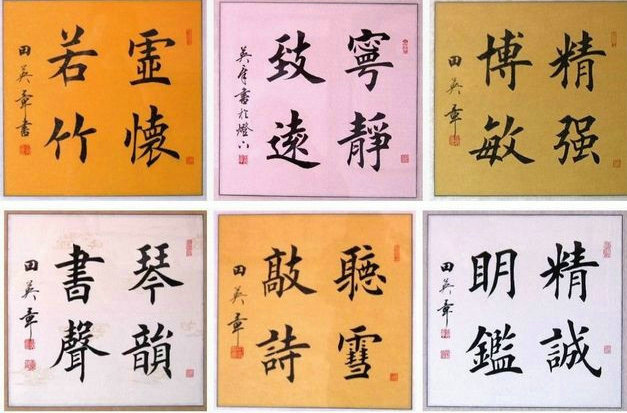 虛懷
若竹
田英章書
寧靜
致遠
英章書於燈下
精强
博敏
田英章
琴韻
書聲
田英章
聽雪
敲詩
田英章
精誠
明鑑
田英章